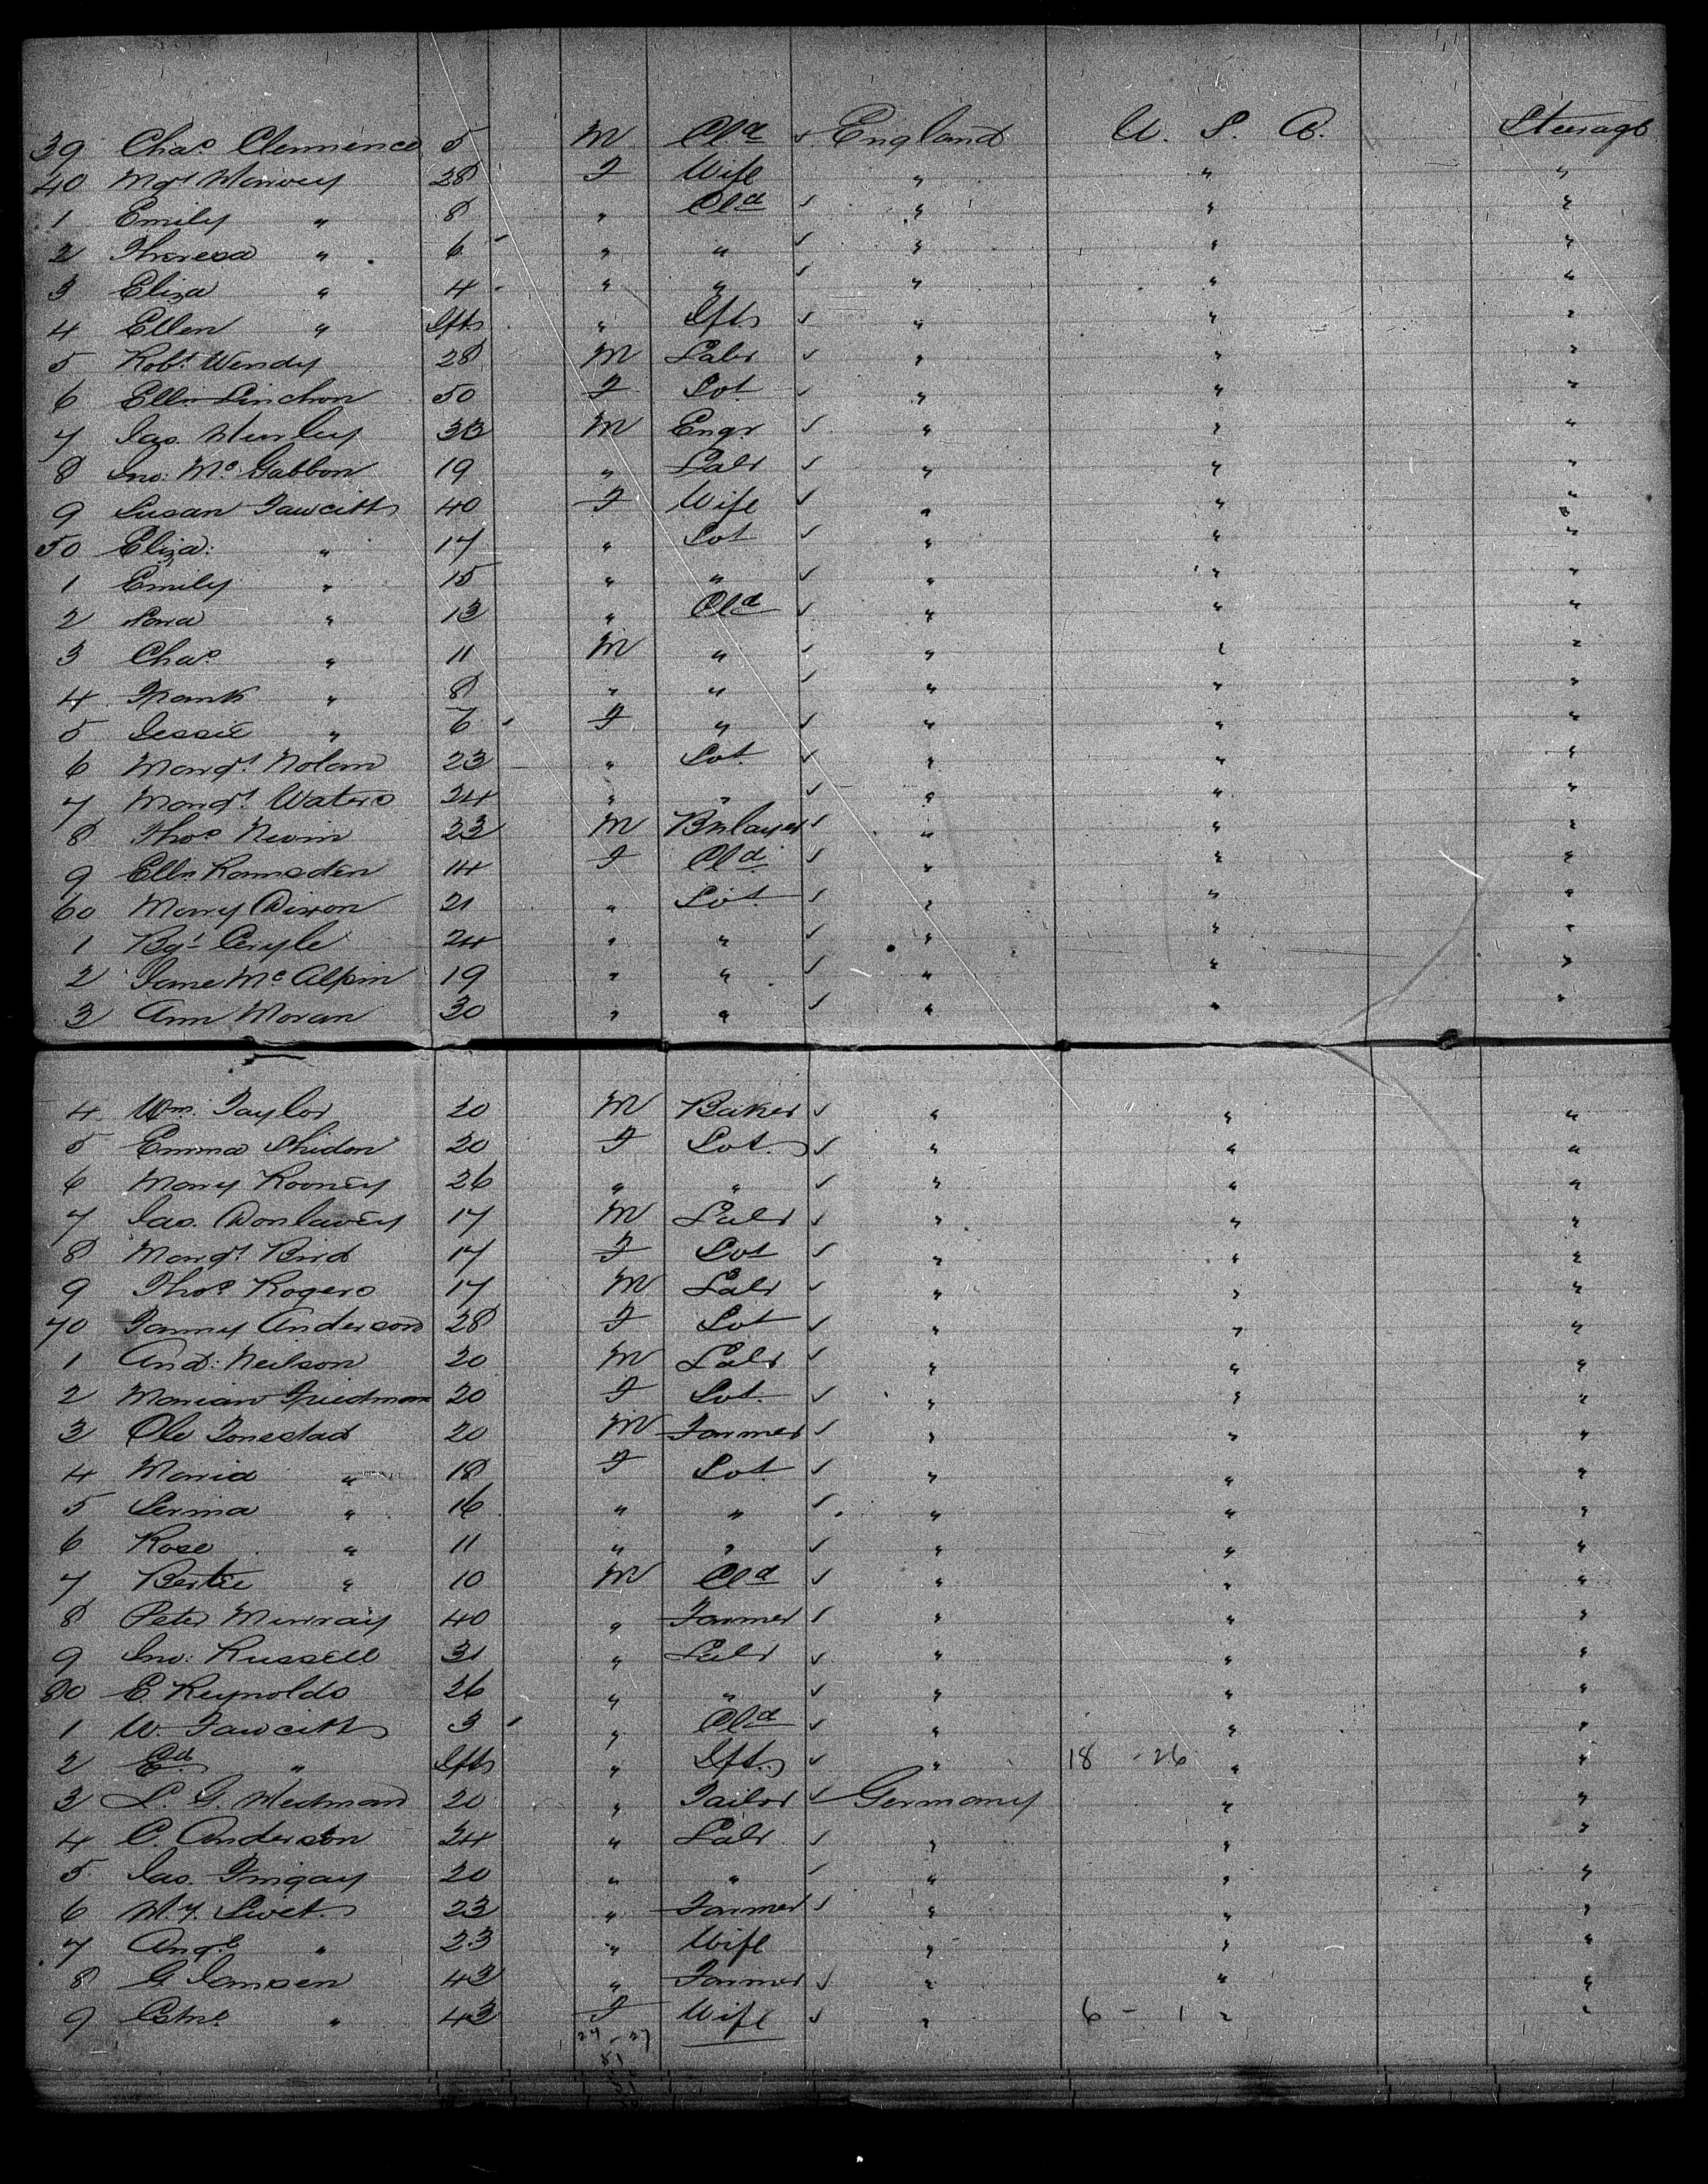 39 Chas Clemence 5 M Cld ✓ England U. S. A. Steerage
40 Mgt Harvey 28 F Wife " " "
1 Emily " 8 " Cld ✓ " " "
2 Theresa " 6 " " ✓ " " "
3 Eliza " 4 " " ✓ " " "
4 Ellen " Ifts " Ifts ✓ " " "
5 Robt Wendy 28 M Labr ✓ " " "
6 Elln Linchon 50 F Sot ✓ " " "
7 Jas. Hurley 33 M Engr ✓ " " "
8 Jno: Mc Gabbon 19 " Labr ✓ " " "
9 Susan Fawcitt 40 F Wife ✓ " " "
50 Eliza: " 17 " Sot ✓ " " "
1 Emily " 15 " " ✓ " " "
2 " 13 " Cld ✓ " " "
3 Chas " 11 M " ✓ " " "
4 Frank " 8 " " ✓ " " "
5 Jessie " 6 F " ✓ " " "
6 Margt Nolan 23 " Sot ✓ " " "
7 Margt Waters 24 " " ✓ " " "
8 Thos Nevin 23 M Brlayer ✓ " " "
9 Elln Ramsden 14 F Cld ✓ " " "
60 Mary Dixon 21 " Sot ✓ " " "
1 Bgt Ceryle 24 " " ✓ " " "
2 Jane Mc Alpin 19 " " ✓ " " "
3 Ann Moran 30 " " ✓ " " "
4 Wm. Taylor 20 M Baker ✓ " " "
5 Emma Shidon 20 F Sot ✓ " " "
6 Mary Rooney 26 " " ✓ " " "
7 Jas. Donlavey 17 M Labr ✓ " " "
8 Margt Bird 17 F Sot ✓ " " "
9 Thos Rogers 17 M Labr ✓ " " "
70 Fanny Anderson 28 F Sot ✓ " " "
1 And: Neilson 20 M Labr ✓ " " "
2 Marian Friedman 20 F Sot ✓ " " "
3 Ole Tonestad 20 M Farmer ✓ " " "
4 Maria " 18 F Sot ✓ " " "
5 Serina " 16 " " ✓ " " "
6 Rose " 11 " " ✓ " " "
7 Bertie " 10 M Cld ✓ " " "
8 Peter Murray 40 " Farmer ✓ " " "
9 Jno: Russell 31 " Labr ✓ " " "
80 E. Reynolds 26 " " ✓ " " "
1 W. Fawcitt 3 " Cld ✓ " " "
2 Ed " Ifts " Ifts ✓ " 18 - 26 " "
3 L. G. Wedman 20 " Tailor ✓ Germany " "
4 C. Anderson 24 " Labr ✓ " " "
5 Jas. Fingay 20 " " ✓ " " "
6 Swet 23 " Farmer ✓ " " "
7 " 23 " Wife " " "
8 G. Jansen 43 " Farmer ✓ " " "
9 " 43 F Wife ✓ " 6 - 1 " "
24 - 27
51